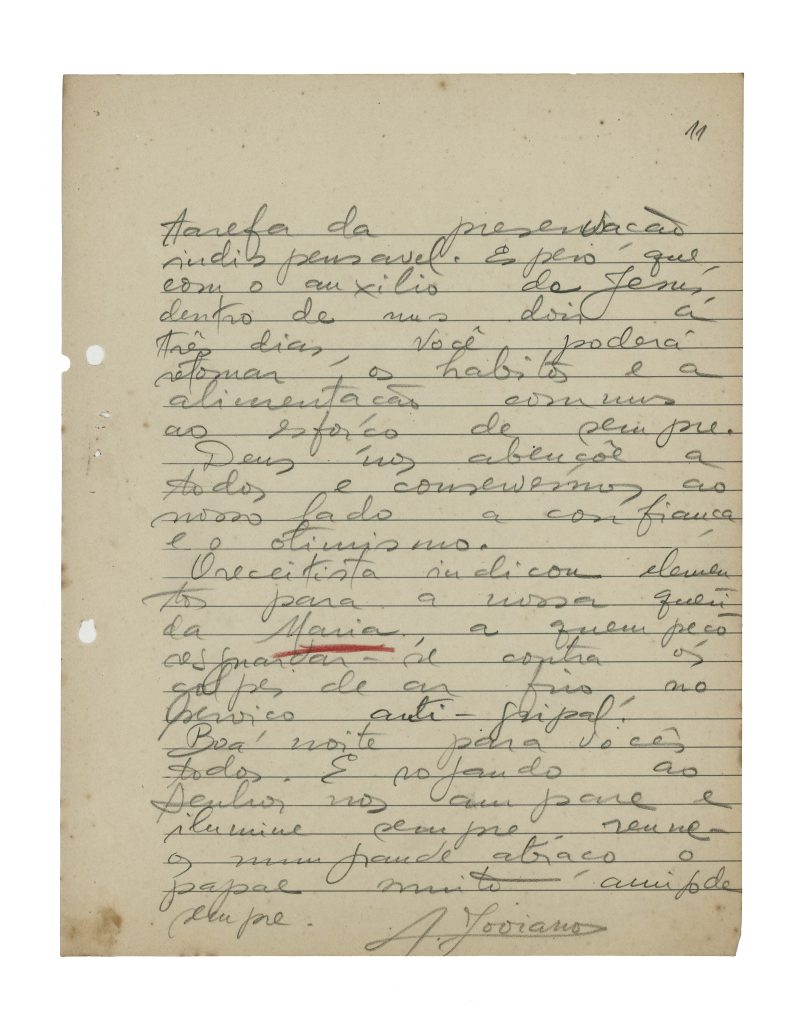 11
tarefa da preservação
indispensavel. Espero, que
com o auxilio de Jesús,
dentro de uns dois á
três dias, você poderá
retomar, os habitos e a
alimentação comuns
ao esforço de sempre.
Deus nos abençõe a
todos e conservemos ao
nosso lado a confiança
e o otimismo.
O receitista indicou elemen
tos para a nossa queri
da Maria, a quem peço
resguardar-se contra os
golpes de ar frio no
serviço anti-gripal.
Boa noite para vocês
todos. E rogando ao
Senhor nos ampare e
ilumine sempre, reune-
os num grande abraço o
papae muito amigo de
sempre.
A. Joviano